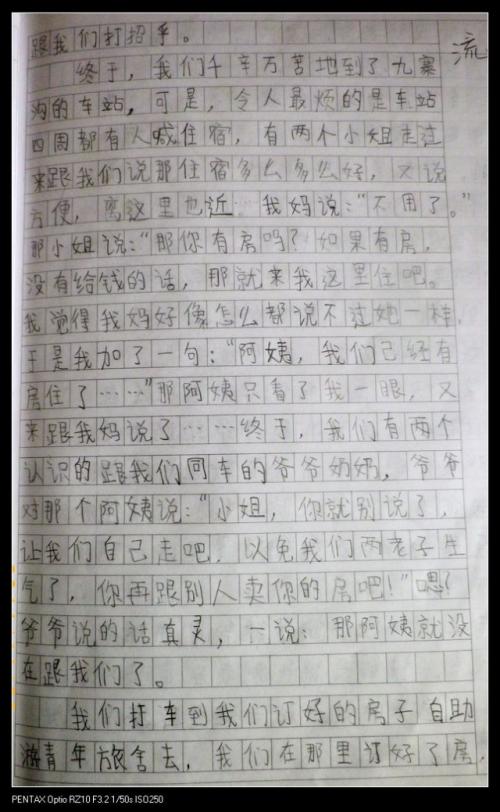 跟我们打招乎。
流
终于，我们千辛万苦地到了九寨
沟的车站，可是，令人最烦的是车站
四周都有人喊住宿，有两个小姐走过
来跟我们说那住宿多么多么好，又说
方便，离这里也近…我妈说：“不用了。”
那小姐说：“那你有房吗？如果有房，
没有给钱的话，那就来我这里住吧。
我觉得我妈好像怎么都说不过她一样，
于是我加了一句：“阿姨，我们已经有
房住了……”那阿姨只看了我一眼，又
来跟我妈说了……终于，我们有两个
认识的跟我们同车的爷爷奶奶，爷爷
对那个阿姨说：“小姐，你就别说了，
让我们自己走吧，以免我们两老子生
气了，你再跟别人卖你的房吧！”嗯！
爷爷说的话真灵，一说：那阿姨就没
在跟我们了。
我们打车到我们订好的房子自助
游青年旅舍去，我们在那里订好了房，
PENTAX Optio RZ10 F3.2 1/50s ISO250